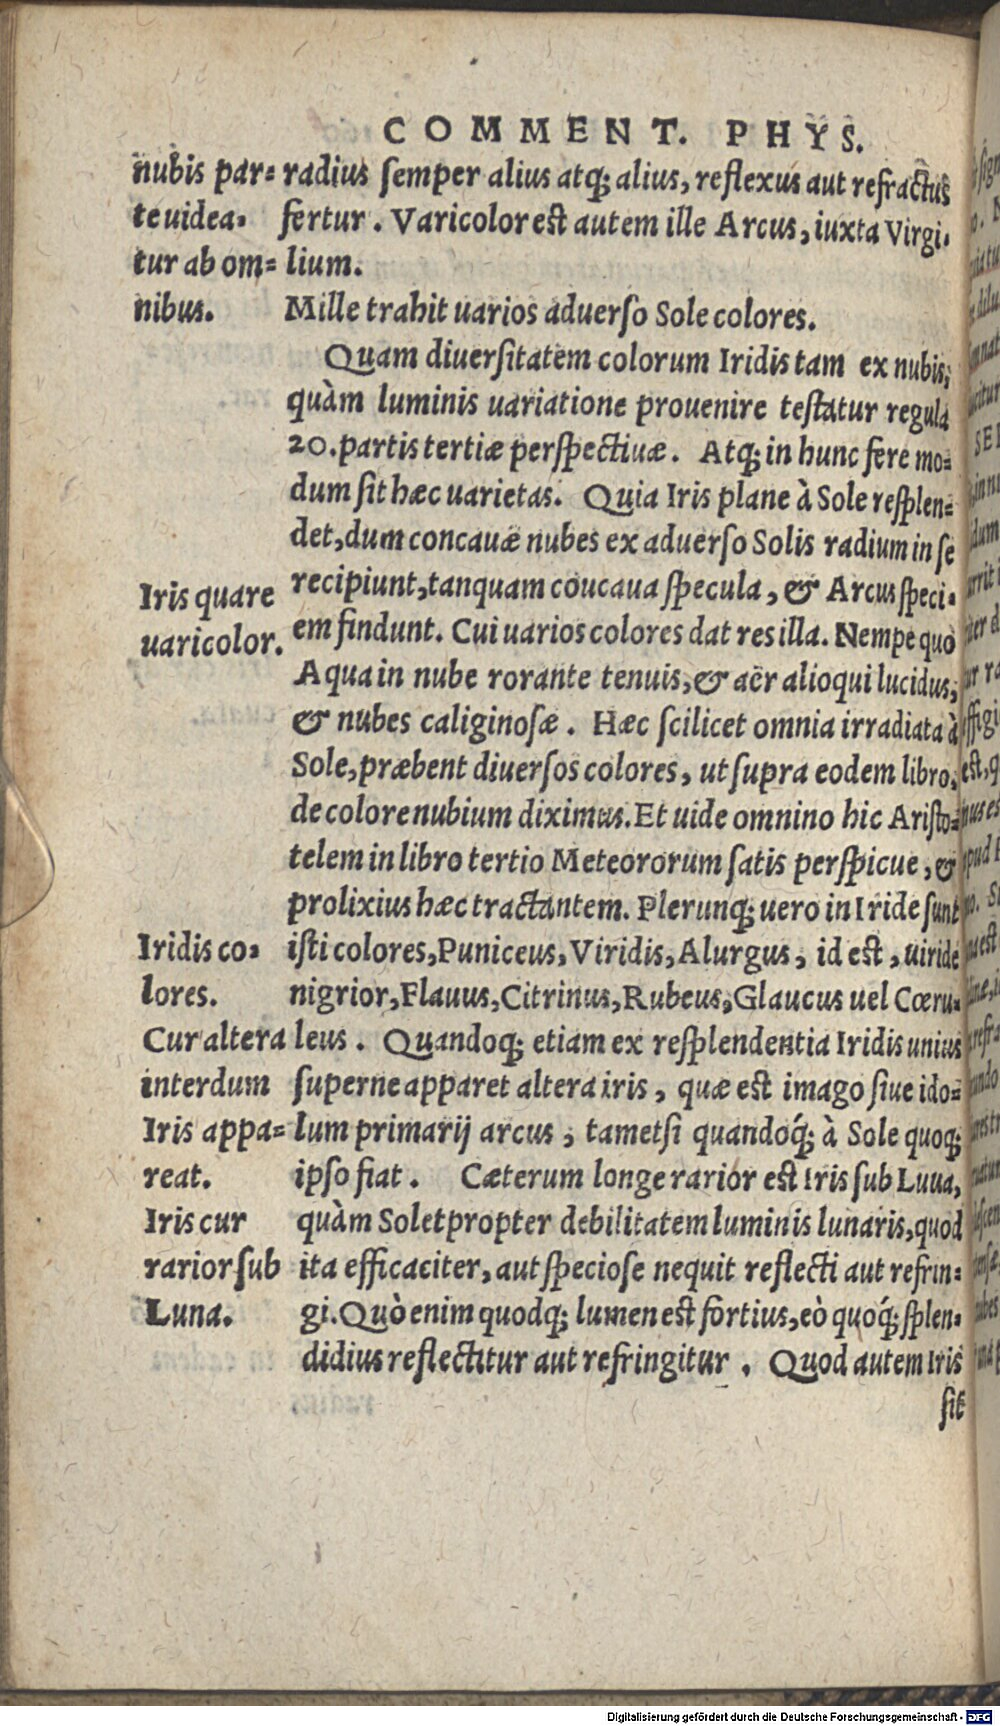 COMMENT. PHYS.
nubis par=
te uidea-
tur ab om=
nibus.
radius ſemper alius atq; alius, reflexus aut refractus
fertur. Varicolor est autem ille Arcus, iuxta Virgi-
lium.
Mille trahit uarios aduerſo Sole colores.
Quam diuerſitatem colorum Iridis tam ex nubis,
quàm luminis uariatione prouenire teſtatur regula
20. partis tertiæ perſpectiuæ. Atq; in hunc fere mo=
dum fit hæc uarietas. Quia Iris plane à Sole reſplen=
det, dum concauæ nubes ex aduerſo Solis radium in ſe
recipiunt, tanquam coucaua ſpecula, & Arcus ſpeci-
em findunt. Cui uarios colores dat res illa. Nempe quo
Iris quare
uaricolor.
Aqua in nube rorante tenuis, & aër alioqui lucidus,
& nubes caliginoſæ. Hæc ſcilicet omnia irradiata à
Sole, præbent diuerſos colores, ut ſupra eodem libro,
de colore nubium diximus. Et uide omnino hic Ariſto=
telem in libro tertio Meteororum ſatis perſpicue, &
prolixius hæc tractantem. Plerunq; uero in Iride ſunt
iſti colores, Puniceus, Viridis, Alurgus, id est, uiride
nigrior, Flauus, Citrinus, Rubeus, Glaucus uel Cœru-
Iridis co-
lores.
leus. Quandoq; etiam ex reſplendentia Iridis unius
ſuperne apparet altera iris, quæ est imago ſiue ido=
lum primarij arcus, tametſi quandoq́; à Sole quoq;
ipſo fiat. Cæterum longe rarior est Iris ſub Luua,
Cur altera
interdum
Iris appa=
reat.
quàm Solet propter debilitatem luminis lunaris, quod
ita efficaciter, aut ſpecioſe nequit reflecti aut refrin=
gi. Quò enim quodq; lumen est fortius, eò quoq́; ſplen-
Iris cur
rarior ſub
Luna.
didius reflectitur aut refringitur. Quod autem Iris
ſit
Digitalisierung gefördert durch die Deutsche Forschungsgemeinschaft - DFG